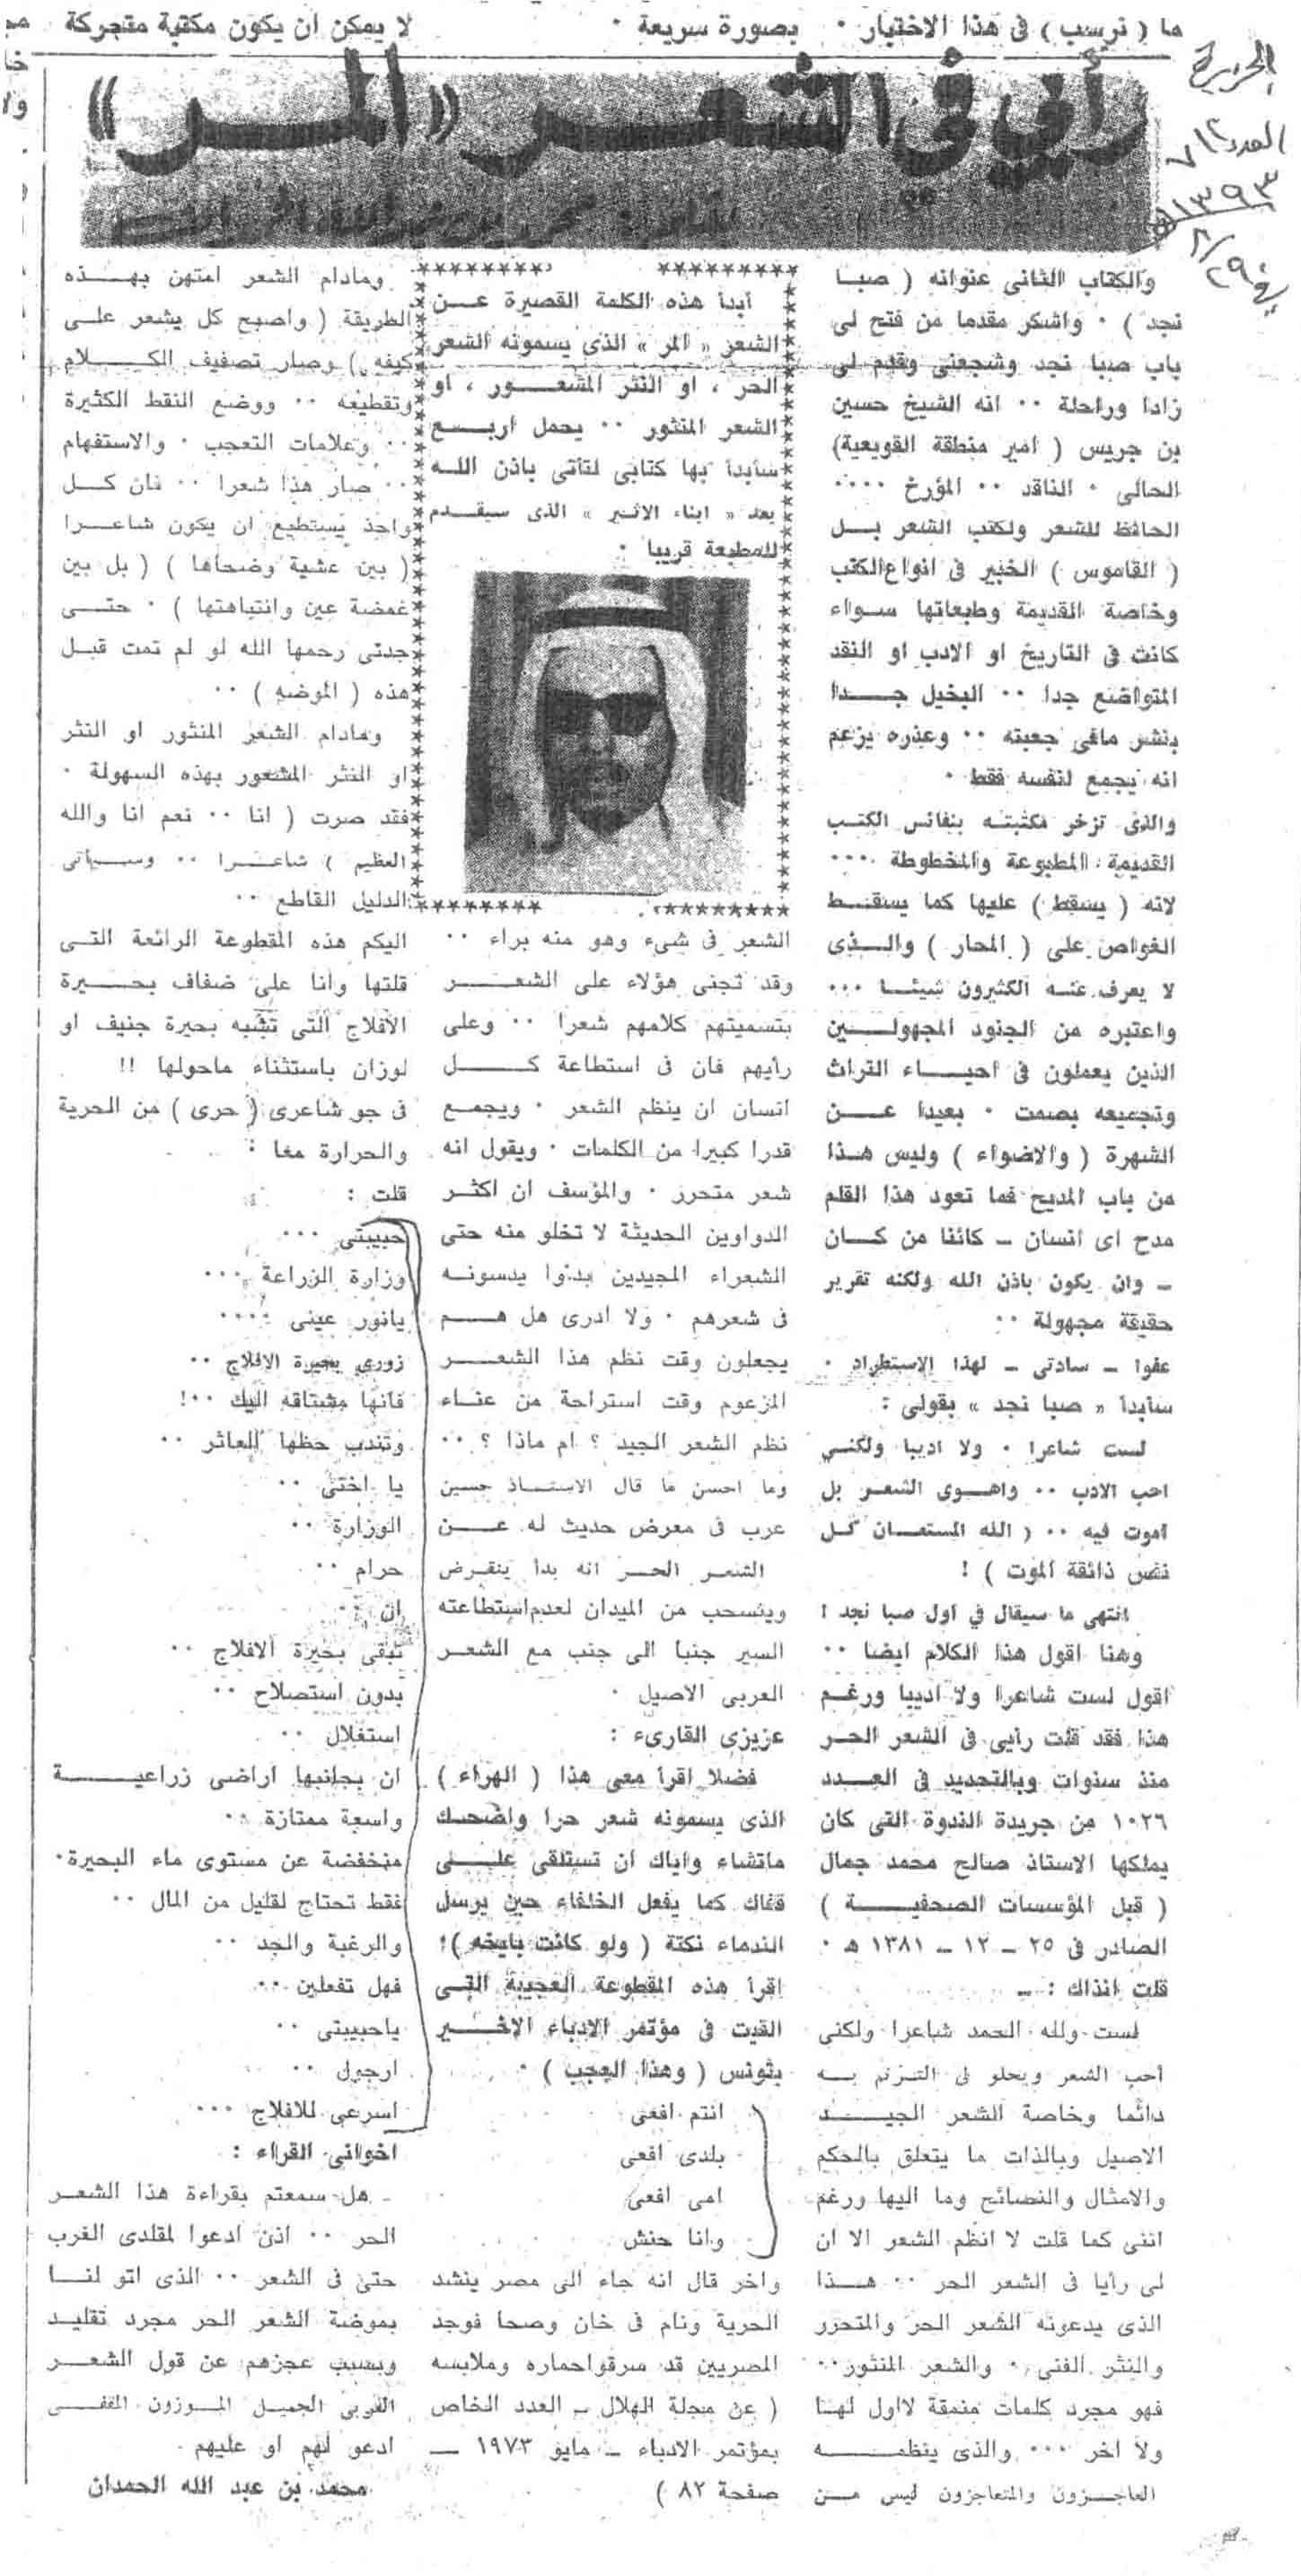 ما ( نرسب ) فى هذا الاختبار ٠
بصورة سريعة ٠
لا يمكن ان يكون مكتبة متجركة
الجزيرة
العدد ٧١٢
١٣٩٣
٨/٢٩
رأيي في الشعر «المر»
أبدأ هذه الكلمة القصيرة عن
الشعر « المر » الذى يسمونه الشعر
الحر ، او النثر المشعور ، او
الشعر المنثور ٠٠ يحمل اربع
سأبدأ بها كتابى لتأتى باذن الله
بعد « ابناء الاثير » الذى سيقدم
للمطبعة قريبا ٠
والكتاب الثانى عنوانه ( صبا
نجد ) ٠ واشكر مقدما من فتح لى
باب صبا نجد وشجعنى وقدم لى
زادا وراحلة ٠٠ انه الشيخ حسين
بن جريس ( امير منطقة القويعية)
الحالى ٠ الناقد ٠٠ المؤرخ ٠٠٠٠
الحافظ للشعر ولكتب الشعر بل
( القاموس ) الخبير فى انواع الكتب
وخاصة القديمة وطبعاتها سواء
كانت فى التاريخ او الادب او النقد
المتواضع جدا ٠٠ البخيل جدا
بنشر مافى جعبته ٠٠ وعذره يزعم
انه يجمع لنفسه فقط ٠
والذى تزخر مكتبته بنفائس الكتب
القديمة المطبوعة والمخطوطة ٠٠٠
لانه ( يسقط ) عليها كما يسقط
الغواص على ( المحار ) والذى
لا يعرف عنه الكثيرون شيئا ٠٠٠
واعتبره من الجنود المجهولين
الذين يعملون فى احياء التراث
وتجميعه بصمت ٠ بعيدا عن
الشهرة ( والاضواء ) وليس هذا
من باب المديح فما تعود هذا القلم
مدح اى انسان ــ كائنا من كان
ــ وان يكون باذن الله ولكنه تقرير
حقيقة مجهولة ٠٠
عفوا ــ سادتى ــ لهذا الاستطراد ٠
سأبدأ « صبا نجد » بقولى :
لست شاعرا ٠ ولا اديبا ولكنى
احب الادب ٠٠ واهوى الشعر بل
اموت فيه ٠٠ ( الله المستعان كل
نفس ذائقة الموت ) !
انتهى ما سيقال في اول صبا نجد !
وهنا اقول هذا الكلام ايضا ٠٠
اقول لست شاعرا ولا اديبا ورغم
هذا فقد قلت رأيى فى الشعر الحر
منذ سنوات وبالتحديد فى العدد
١٠٢٦ من جريدة الندوة التى كان
يملكها الاستاذ صالح محمد جمال
( قبل المؤسسات الصحفية )
الصادر فى ٢٥ ــ ١٢ ــ ١٣٨١ هـ ٠
قلت انذاك : ــ
لست ولله الحمد شاعرا ولكنى
احب الشعر ويحلو لى الترنم به
دائما وخاصة الشعر الجيد
الاصيل وبالذات ما يتعلق بالحكم
والامثال والنصائح وما اليها ورغم
اننى كما قلت لا انظم الشعر الا ان
لى رأيا فى الشعر الحر ٠٠ هذا
الذى يدعونه الشعر الحر والمتحرر
والنثر الفنى ٠ والشعر المنثور٠٠
فهو مجرد كلمات منمقة لااول لها
ولا اخر ٠٠٠ والذى ينظمه
العاجزون والمتعاجزون ليس من
الشعر فى شىء وهو منه براء ٠٠
وقد تجنى هؤلاء على الشعر
بتسميتهم كلامهم شعرا ٠٠ وعلى
رأيهم فان فى استطاعة كل
انسان ان ينظم الشعر ٠ ويجمع
قدرا كبيرا من الكلمات ٠ ويقول انه
شعر متحرر ٠ والمؤسف ان اكثر
الدواوين الحديثة لا تخلو منه حتى
الشعراء المجيدين بدأوا يدسونه
فى شعرهم ٠ ولا ادرى هل هم
يجعلون وقت نظم هذا الشعر
المزعوم وقت استراحة من عناء
نظم الشعر الجيد ؟ ام ماذا ؟ ٠٠
وما احسن ما قال الاستاذ حسين
عرب فى معرض حديث له عن
الشعر الحر انه بدأ ينقرض
وينسحب من الميدان لعدم استطاعته
السير جنبا الى جنب مع الشعر
العربى الاصيل ٠
عزيزى القارىء :
فضلا اقرأ معى هذا ( الهراء )
الذى يسمونه شعر حرا واضحك
ماتشاء واياك ان تستلقى على
قفاك كما يفعل الخلفاء حين يرسل
الندماء نكتة ( ولو كانت بايخه )!
اقرأ هذه المقطوعة العجيبة التى
القيت فى مؤتمر الادباء الاخير
بتونس ( وهذا العجب ) ٠
انتم افعى
بلدى افعى
امى افعى
وانا حنش
واخر قال انه جاء الى مصر ينشد
الحرية ونام فى خان وصحا فوجد
المصريين قد سرقوا حماره وملابسه
( عن مجلة الهلال ــ العدد الخاص
بمؤتمر الادباء ــ مايو ١٩٧٣ ــ
صفحة ٨٢ )
ومادام الشعر امتهن بهذه
الطريقة ( واصبح كل يشعر على
كيفه ) وصار تصفيف الكلام
وتقطيعه ٠٠ ووضع النقط الكثيرة
٠٠ وعلامات التعجب ٠ والاستفهام
٠٠ صار هذا شعرا ٠٠ فان كل
واحد يستطيع ان يكون شاعرا
( بين عشية وضحاها ) ( بل بين
غمضة عين وانتباهتها ) ٠ حتى
جدتى رحمها الله لو لم تمت قبل
هذه ( الموضه ) ٠٠
ومادام الشعر المنثور او النثر
او النثر المشعور بهذه السهولة ٠
فقد صرت ( انا ٠٠ نعم انا والله
العظيم ) شاعرا ٠٠ وسيأتى
الدليل القاطع ٠٠
اليكم هذه المقطوعة الرائعة التى
قلتها وانا على ضفاف بحيرة
الافلاج التى تشبه بحيرة جنيف او
لوزان باستثناء ماحولها !!
فى جو شاعرى ( حرى ) من الحرية
والحرارة معا :
قلت :
حبيبتى ٠٠٠
وزارة الزراعة ٠٠٠
يانور عينى ٠٠٠٠
زورى بحيرة الافلاج ٠٠
فانها مشتاقه اليك ٠٠!
وتندب حظها العاثر ٠٠
يا اختى ٠٠
الوزارة ٠٠
حرام ٠٠
ان ٠٠
تبقى بحيرة الافلاج ٠٠
بدون استصلاح ٠٠
استغلال ٠٠
ان بجانبها اراضى زراعية
واسعة ممتازة ٠٠
منخفضة عن مستوى ماء البحيرة٠
فقط تحتاج لقليل من المال ٠٠
والرغبة والجد ٠٠
فهل تفعلين ٠٠
ياحبيبتى ٠٠
ارجوك ٠٠
اسرعى للافلاج ٠٠٠
اخوانى القراء :
هل سمعتم بقراءة هذا الشعر
الحر ٠٠ اذن ادعوا لمقلدى الغرب
حتى فى الشعر ٠٠ الذى اتو لنا
بموضة الشعر الحر مجرد تقليد
وبسبب عجزهم عن قول الشعر
العربى الجميل الموزون المقفى
ادعو لهم او عليهم ٠
محمد بن عبد الله الحمدان